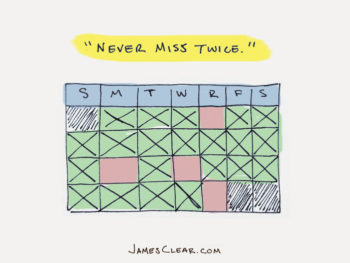 "NEVER MISS TWICE."
S M T W R F S
JAMESCLEAR.COM